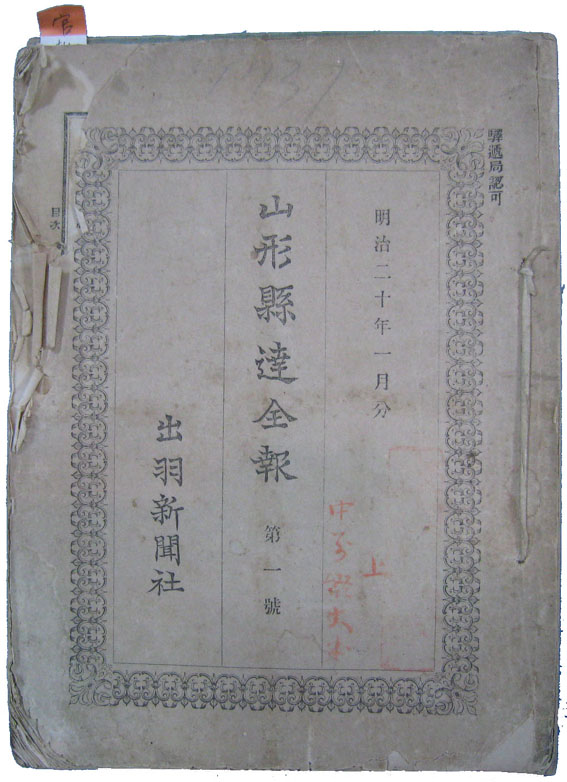 驛遞局認可
明治二十年一月分
山形縣達全報 第一號
出羽新聞社
上
目次
官